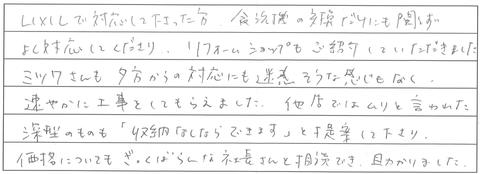 LIXILで対応して下さった方、食洗機の交換だけにも関らず
よく対応してくださり、リフォームショップもご紹介していただきました
ミツワさんも夕方からの対応にも迷惑そうな感じもなく、
速やかに工事をしてもらえました。他店ではムリと言われた
深型のものも「収納なしならできます」と提案して下さり、
価格についてもざっくばらんな社長さんと相談でき、助かりました。